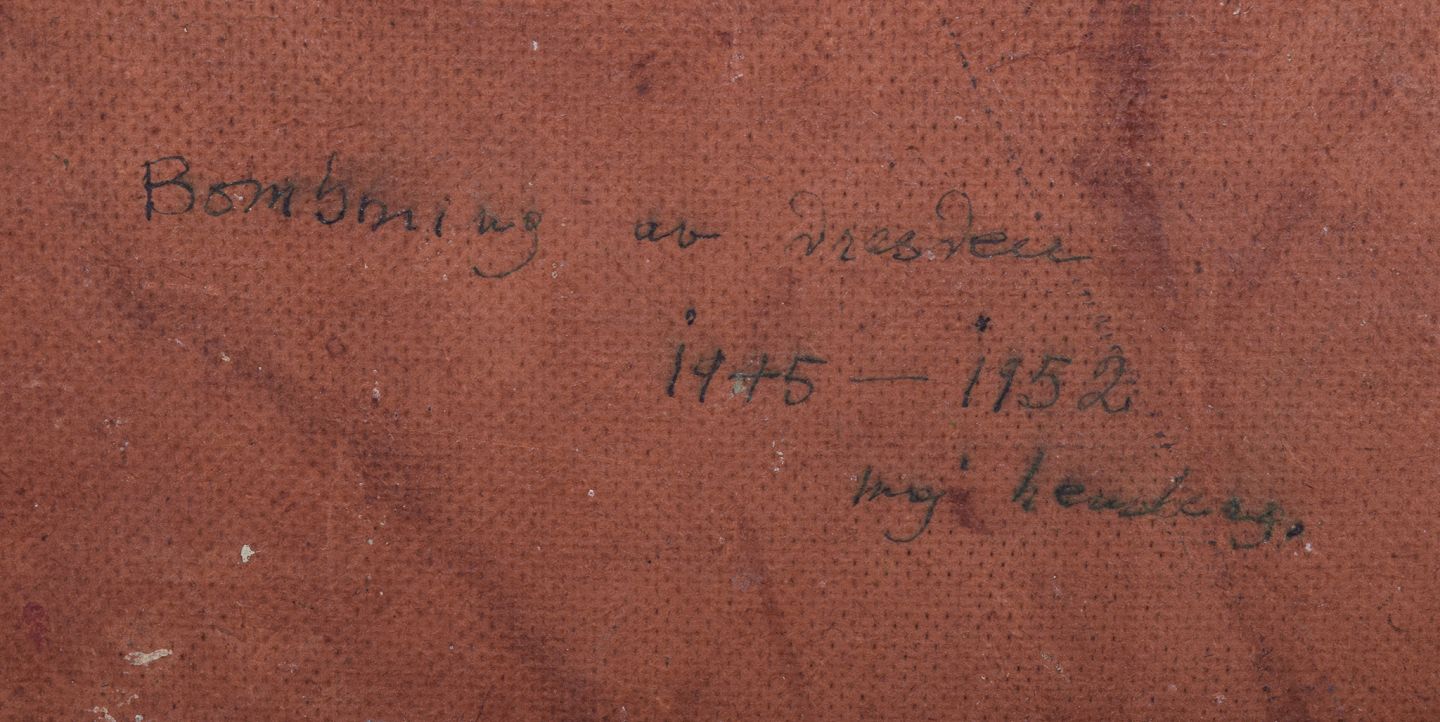 Bombning av dresden
1945 — 1952